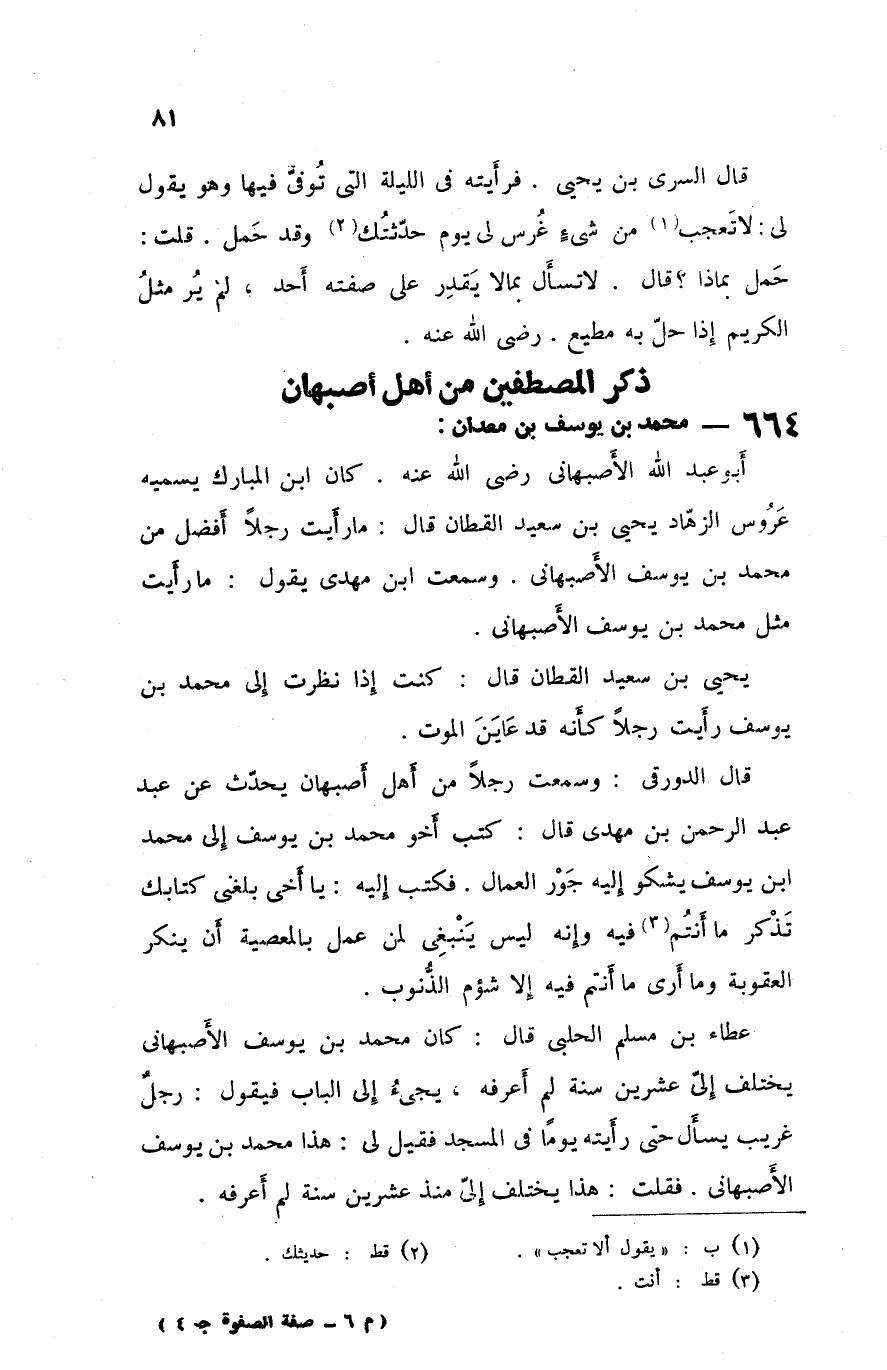 ٨١
قال السرى بن يحيى . فرأَيته فى الليلة التى تُوفىَّ فيها وهو يقول
لى : لاتَعجب(١) من شىءٍ غُرس لى يوم حدّثتُك(٢) وقد حَمل . قلت :
حَمل بماذا ؟ قال . لاتسأَل بمالا يَقدِر على صفته أَحد ، لمْ يُر مثلُ
الكريم إِذا حلّ به مطيع . رضى الله عنه .
ذكر المصطفين من أهل أصبهان
٦٦٤ — محمد بن يوسف بن معدان :
أَبوعبد الله الأَصبهانى رضى الله عنه . كان ابن المبارك يسميه
عَرُوس الزهّاد يحيى بن سعيد القطان قال : مارأَيت رجلاً أَفضل من
محمد بن يوسف الأَصبهانى . وسمعت ابن مهدى يقول : مارأَيت
مثل محمد بن يوسف الأَصبهانى .
يحيى بن سعيد القطان قال : كنت إِذا نظرت إِلى محمد بن
يوسف رأَيت رجلاً كأَنه قد عَايَنَ الموت .
قال الدورقى : وسمعت رجلاً من أَهل أَصبهان يحدّث عن عبد
عبد الرحمن بن مهدى قال : كتب أَخو محمد بن يوسف إِلى محمد
ابن يوسف يشكو إِليه جَوْر العمال . فكتب إِليه : يا أَخى بلغنى كتابك
تَذْكر ما أَنتُم(٣) فيه وإِنه ليس يَنْبغِى لمن عمل بالمعصية أَن ينكر
العقوبة وما أَرى ما أَنتم فيه إِلا شؤم الذُّنوب .
عطاء بن مسلم الحلبى قال : كان محمد بن يوسف الأَصبهانى
يختلف إِلىّ عشرين سنة لم أَعرفه ، يجىءُ إِلى الباب فيقول : رجلٌ
غريب يسأَل حتى رأَيته يومًا فى المسجد فقيل لى : هذا محمد بن يوسف
الأَصبهانى . فقلت : هذا يختلف إِلىّ منذ عشرين سنة لم أَعرفه .
(١) ب : « يقول ألا تعجب » . (٢) قط : حديثك .
(٣) قط : أنت .
( م ٦ – صفة الصفوة جـ ٤ )